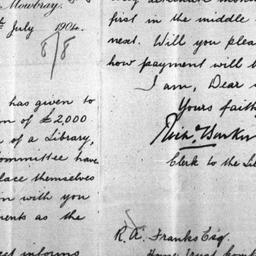 Mowbray.
th July 1904.
8/8
has given to
m of £2,000
e of a Library,
committee have
lace themselves
on with you
ments as the
first in the middle
next. Will you plea
how payment will b
I am, Dear
Yours faith
Clerk to the
R. A. Franks Esq.
Home Trust Com